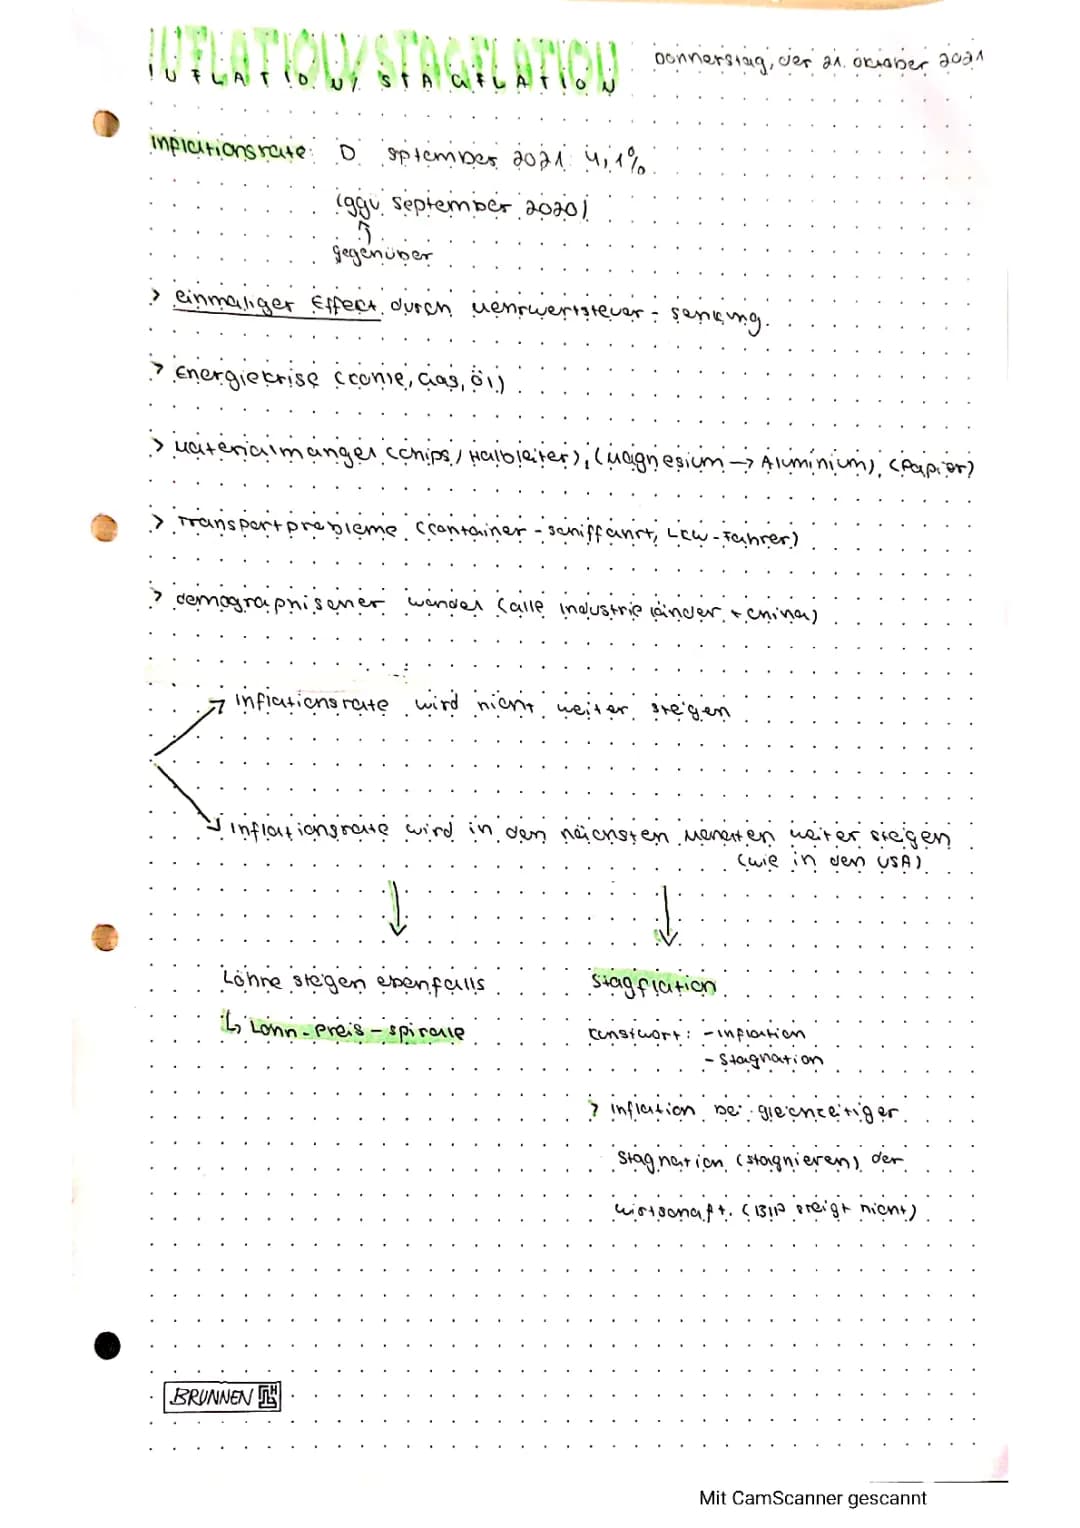 INFLATION/STAGFLATION
INFLATION/STAGFLATION
Donnerstag, der 21. Oktober 2021
Inflationsrate: D September 2021: 4,1%
(ggü. September 2020)
gegenüber
> einmaliger Effekt durch Mehrwertsteuer-senkung.
> Energiekrise (Kohle, Gas, Öl)
> Materialmangel (Chips / Halbleiter), (Magnesium → Aluminium), (Papier)
> Transportprobleme (Container-schifffahrt, LKW-Fahrer)
> demographischer wandel (alle Industrieländer + China)
Inflationsrate wird nicht weiter steigen
Inflationsrate wird in den nächsten Monaten weiter steigen
(wie in den USA)
Löhne steigen ebenfalls
↳ Lohn-Preis-spirale
Stagflation
Kunstwort: - Inflation
- Stagnation
> Inflation bei gleichzeitiger
Stagnation (stagnieren) der
Wirtschaft. (BIP steigt nicht)
BRUNNEN
Mit CamScanner gescannt